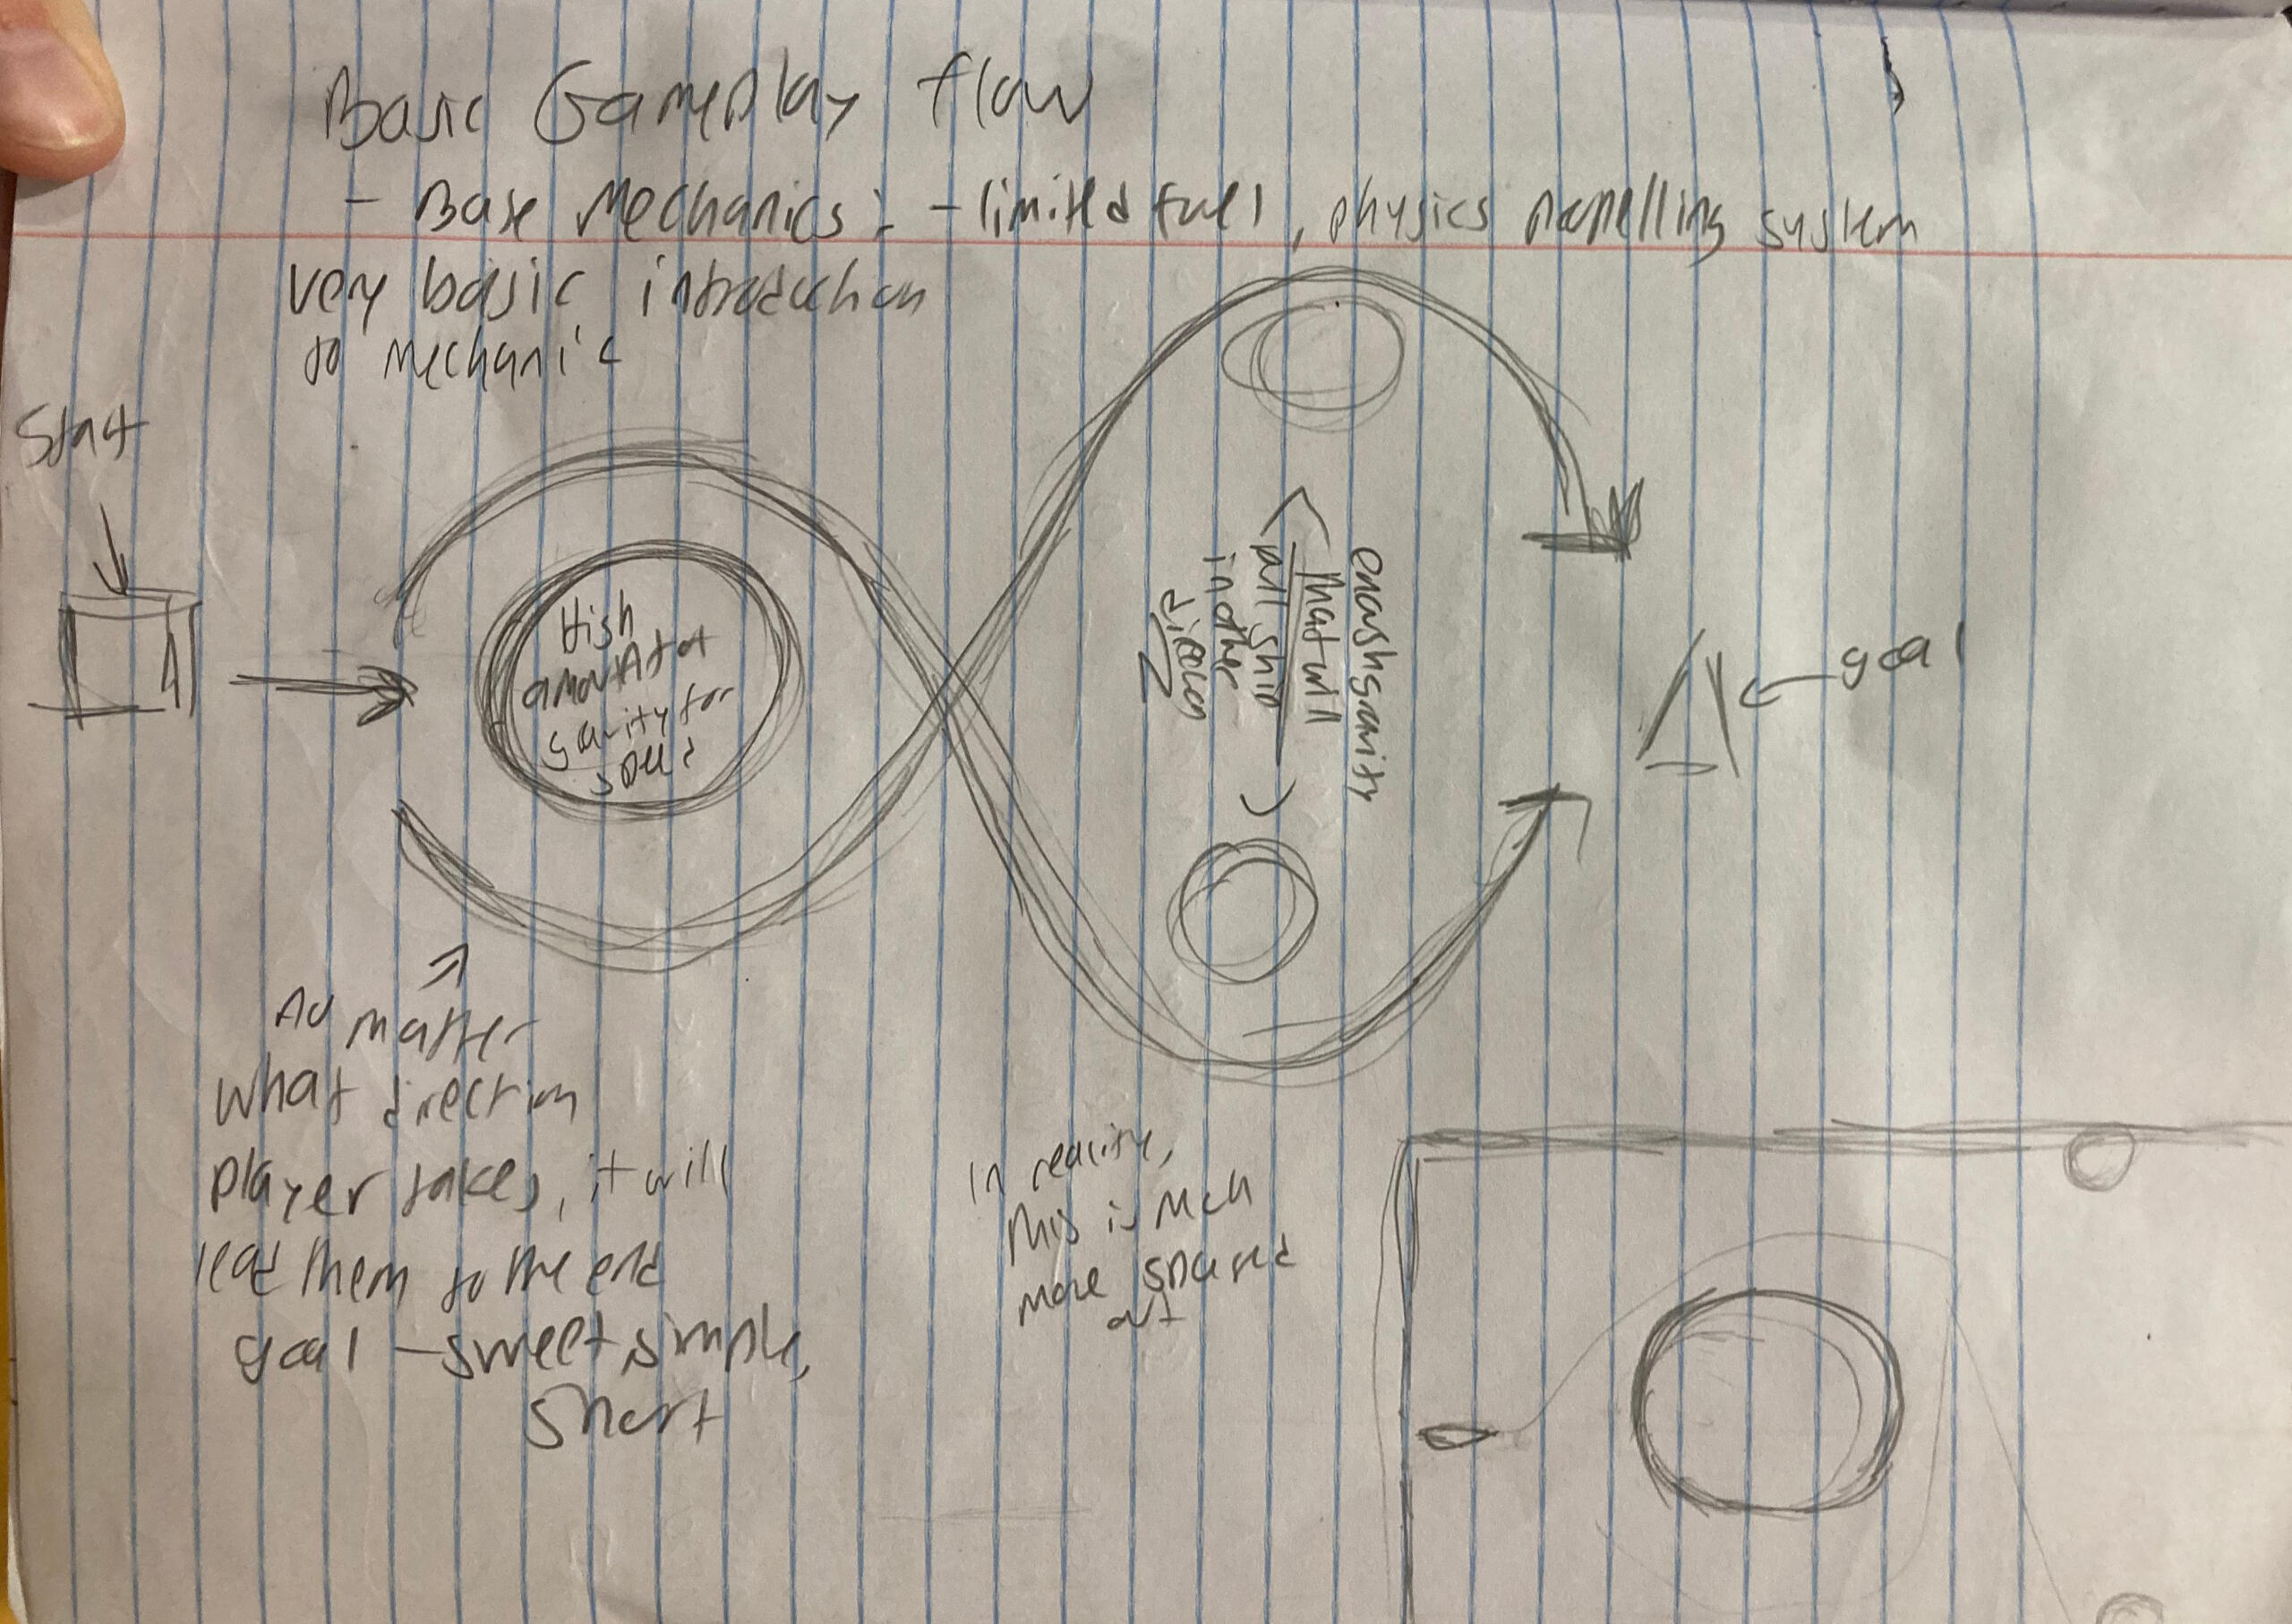 Basic Gameplay flow
- Base Mechanics: - limited fuel, physics propelling system
very basic introduction
to mechanic
Start
High
amount of
gravity for
speed
enough gravity
that will
pull ship
in other
direction
goal
No matter
what direction
player takes, it will
lead them to the end
goal - sweet, simple,
short
In reality,
this is much
more spaced
out